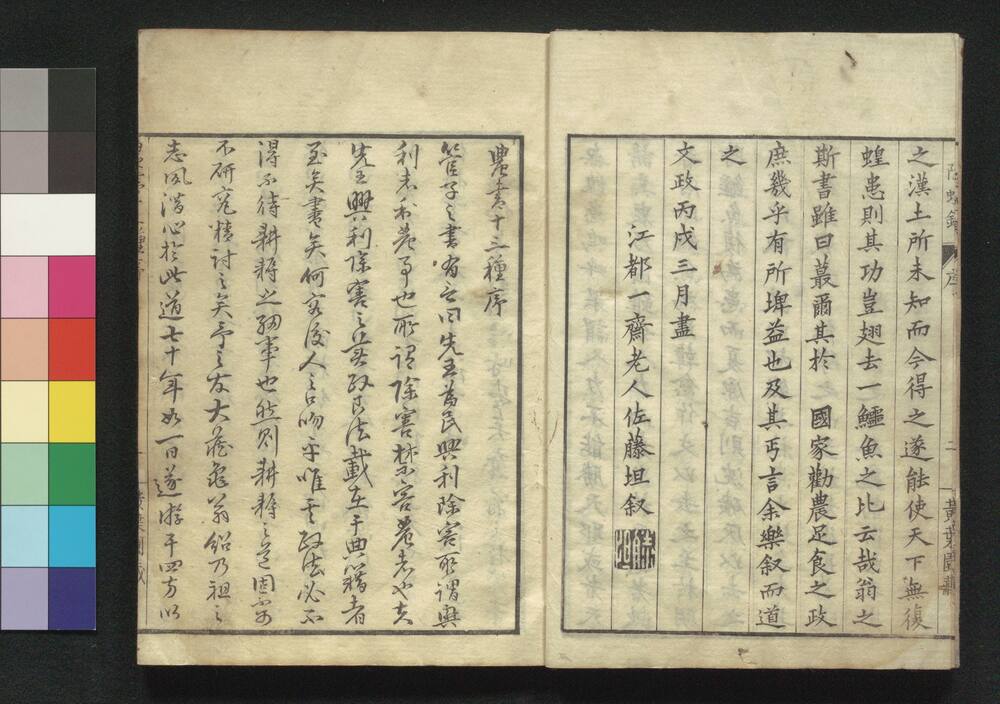 之漢土所未知而今得之遂能使天下無復
蝗患則其功豈翅去一鱷魚之比云哉翁之
斯書雖曰蕞爾其於 國家勸農足食之政
庶幾乎有所埤益也及其丐言余樂叙而道
之
文政丙戌三月盡
江都一齋老人佐藤坦叙
農書十三種序
管子之書有之曰先王為民興利除害所謂興
利者利農事也所謂除害者禁害農者也夫
先王興利除害之法載在于典籍者
至矣書矣何容後人之吻乎唯其政法必不
得不待耕耨之細事也然則耕耨之道固不可
不研究精討之矣予之友大藏老翁紹乃祖之
志夙潛心於此道七十年如一日遂游于四方以